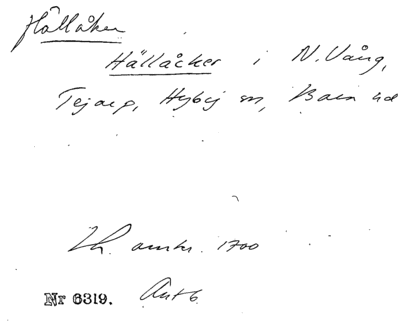 Hällåker
Hällåcker i N. Vång,
Tejarp, Hyby sn, Bara hd
Lh. omkr. 1700
Nr 6319. Ant 6